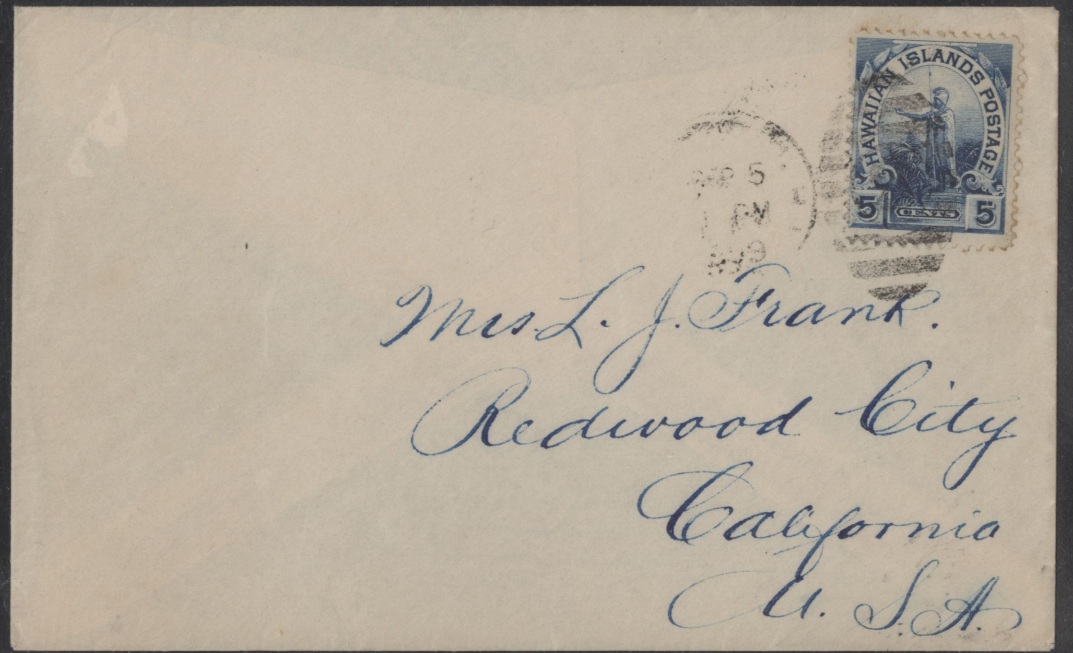 HAWAIIAN ISLANDS POSTAGE
5 CENTS 5
5
PM
Mrs. L. J. Frank.
Redwood City
California
U. S. A.